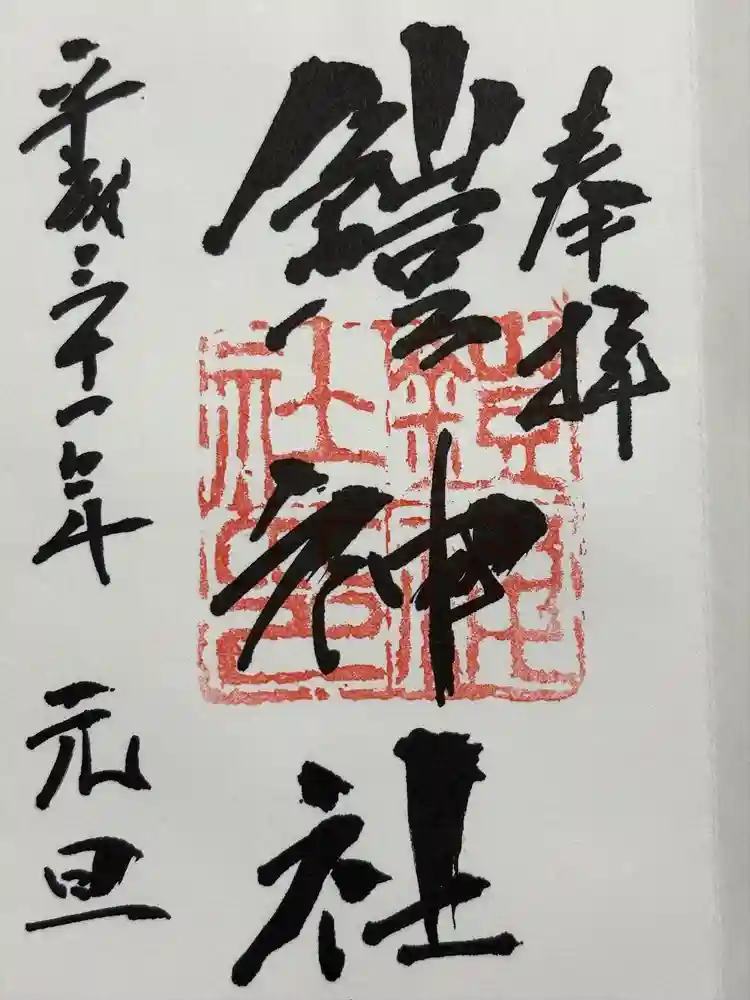 奉拝
鎧神社
鎧神社之印
平成三十一年 元旦